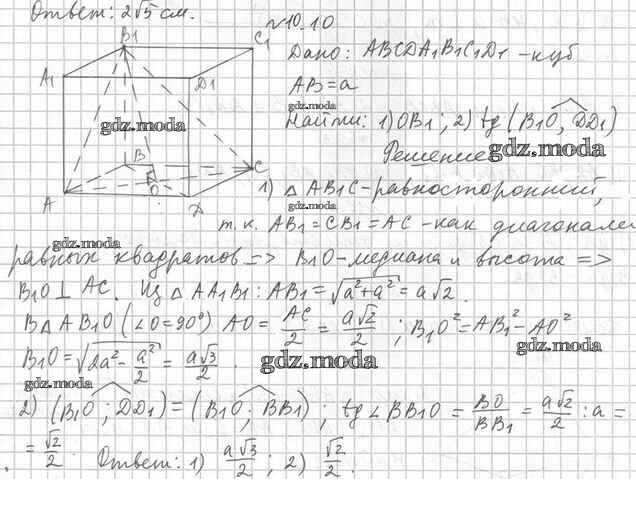 Ответ: 2√5 см.
№10.10
B₁
C₁
A₁
D₁
B
C
O
A
D
Дано: ABCDA₁B₁C₁D₁ - куб
AB = a
gdz.moda
Найти: 1) OB₁; 2) tg (B₁O, DD₁)
gdz.moda
Решение
gdz.moda
1) △ AB₁C - равносторонний,
gdz.moda
т.к. AB₁ = CB₁ = AC - как диагонали
gdz.moda
равных квадратов => B₁O - медиана и высота =>
B₁O ⊥ AC. Из △ AA₁B₁: AB₁ = √a² + a² = a√2.
В △ AB₁O (∠O = 90°) AO = AC/2 = a√2/2; B₁O² = AB₁² - AO²
gdz.moda
B₁O = √2a² - a²/2 = a√3/2.
gdz.moda
gdz.moda
2) (B₁O; DD₁) = (B₁O; BB₁); tg ∠ BB₁O = BO/BB₁ = a√2/2 : a =
= √2/2. Ответ: 1) a√3/2; 2) √2/2.